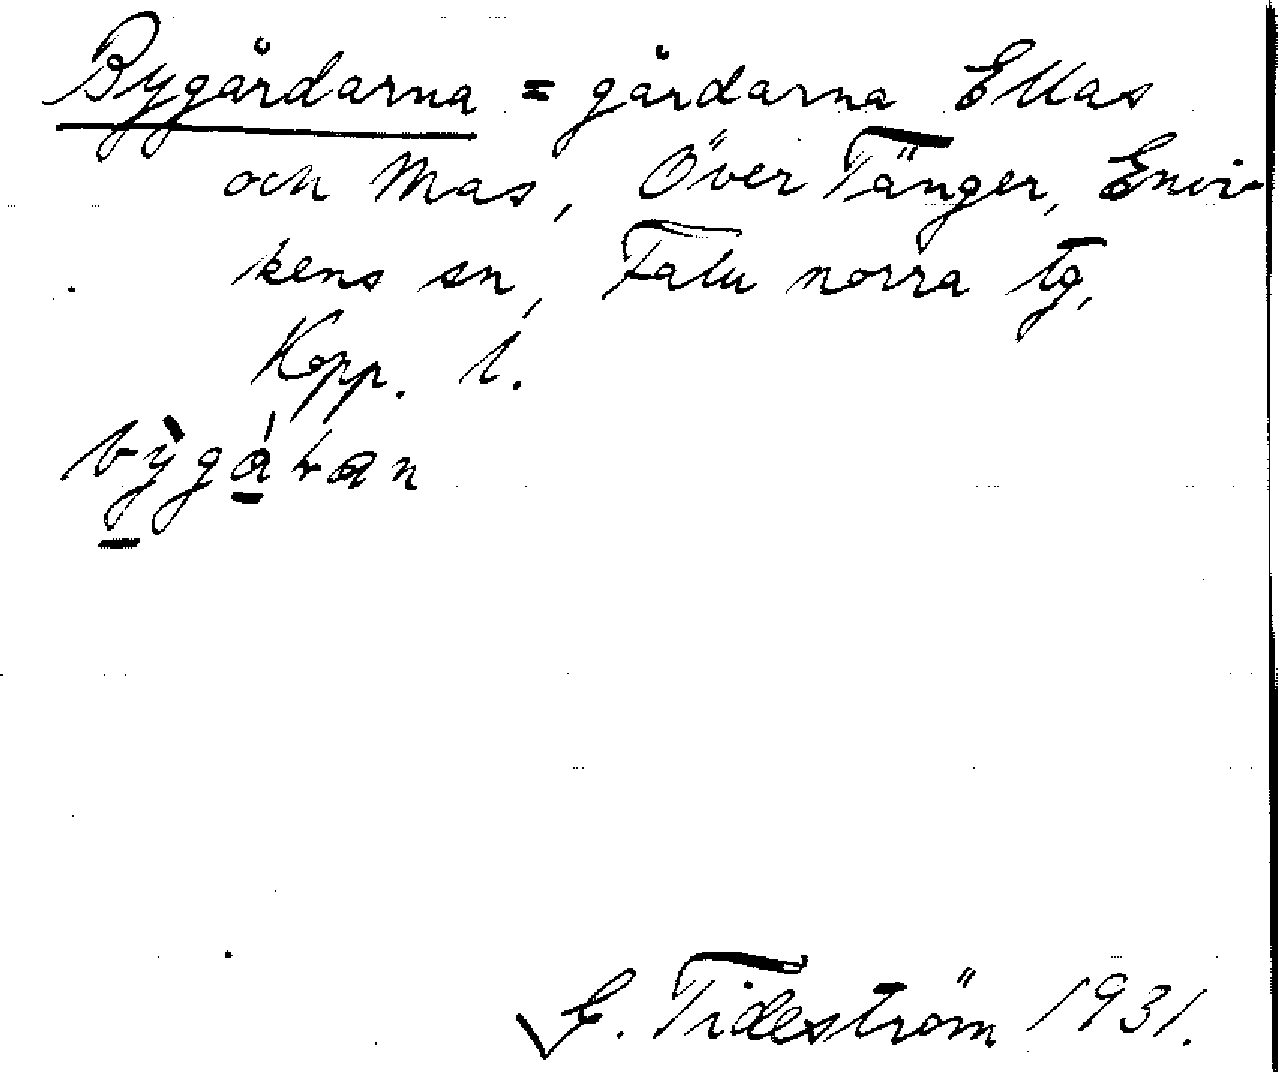 Bygårdarna = gårdarna Ellas
och Mas, Över Tänger, Envi-
kens sn, Falu norra tg,
Kopp. l.
bỳgáran
G. Tideström 1931.